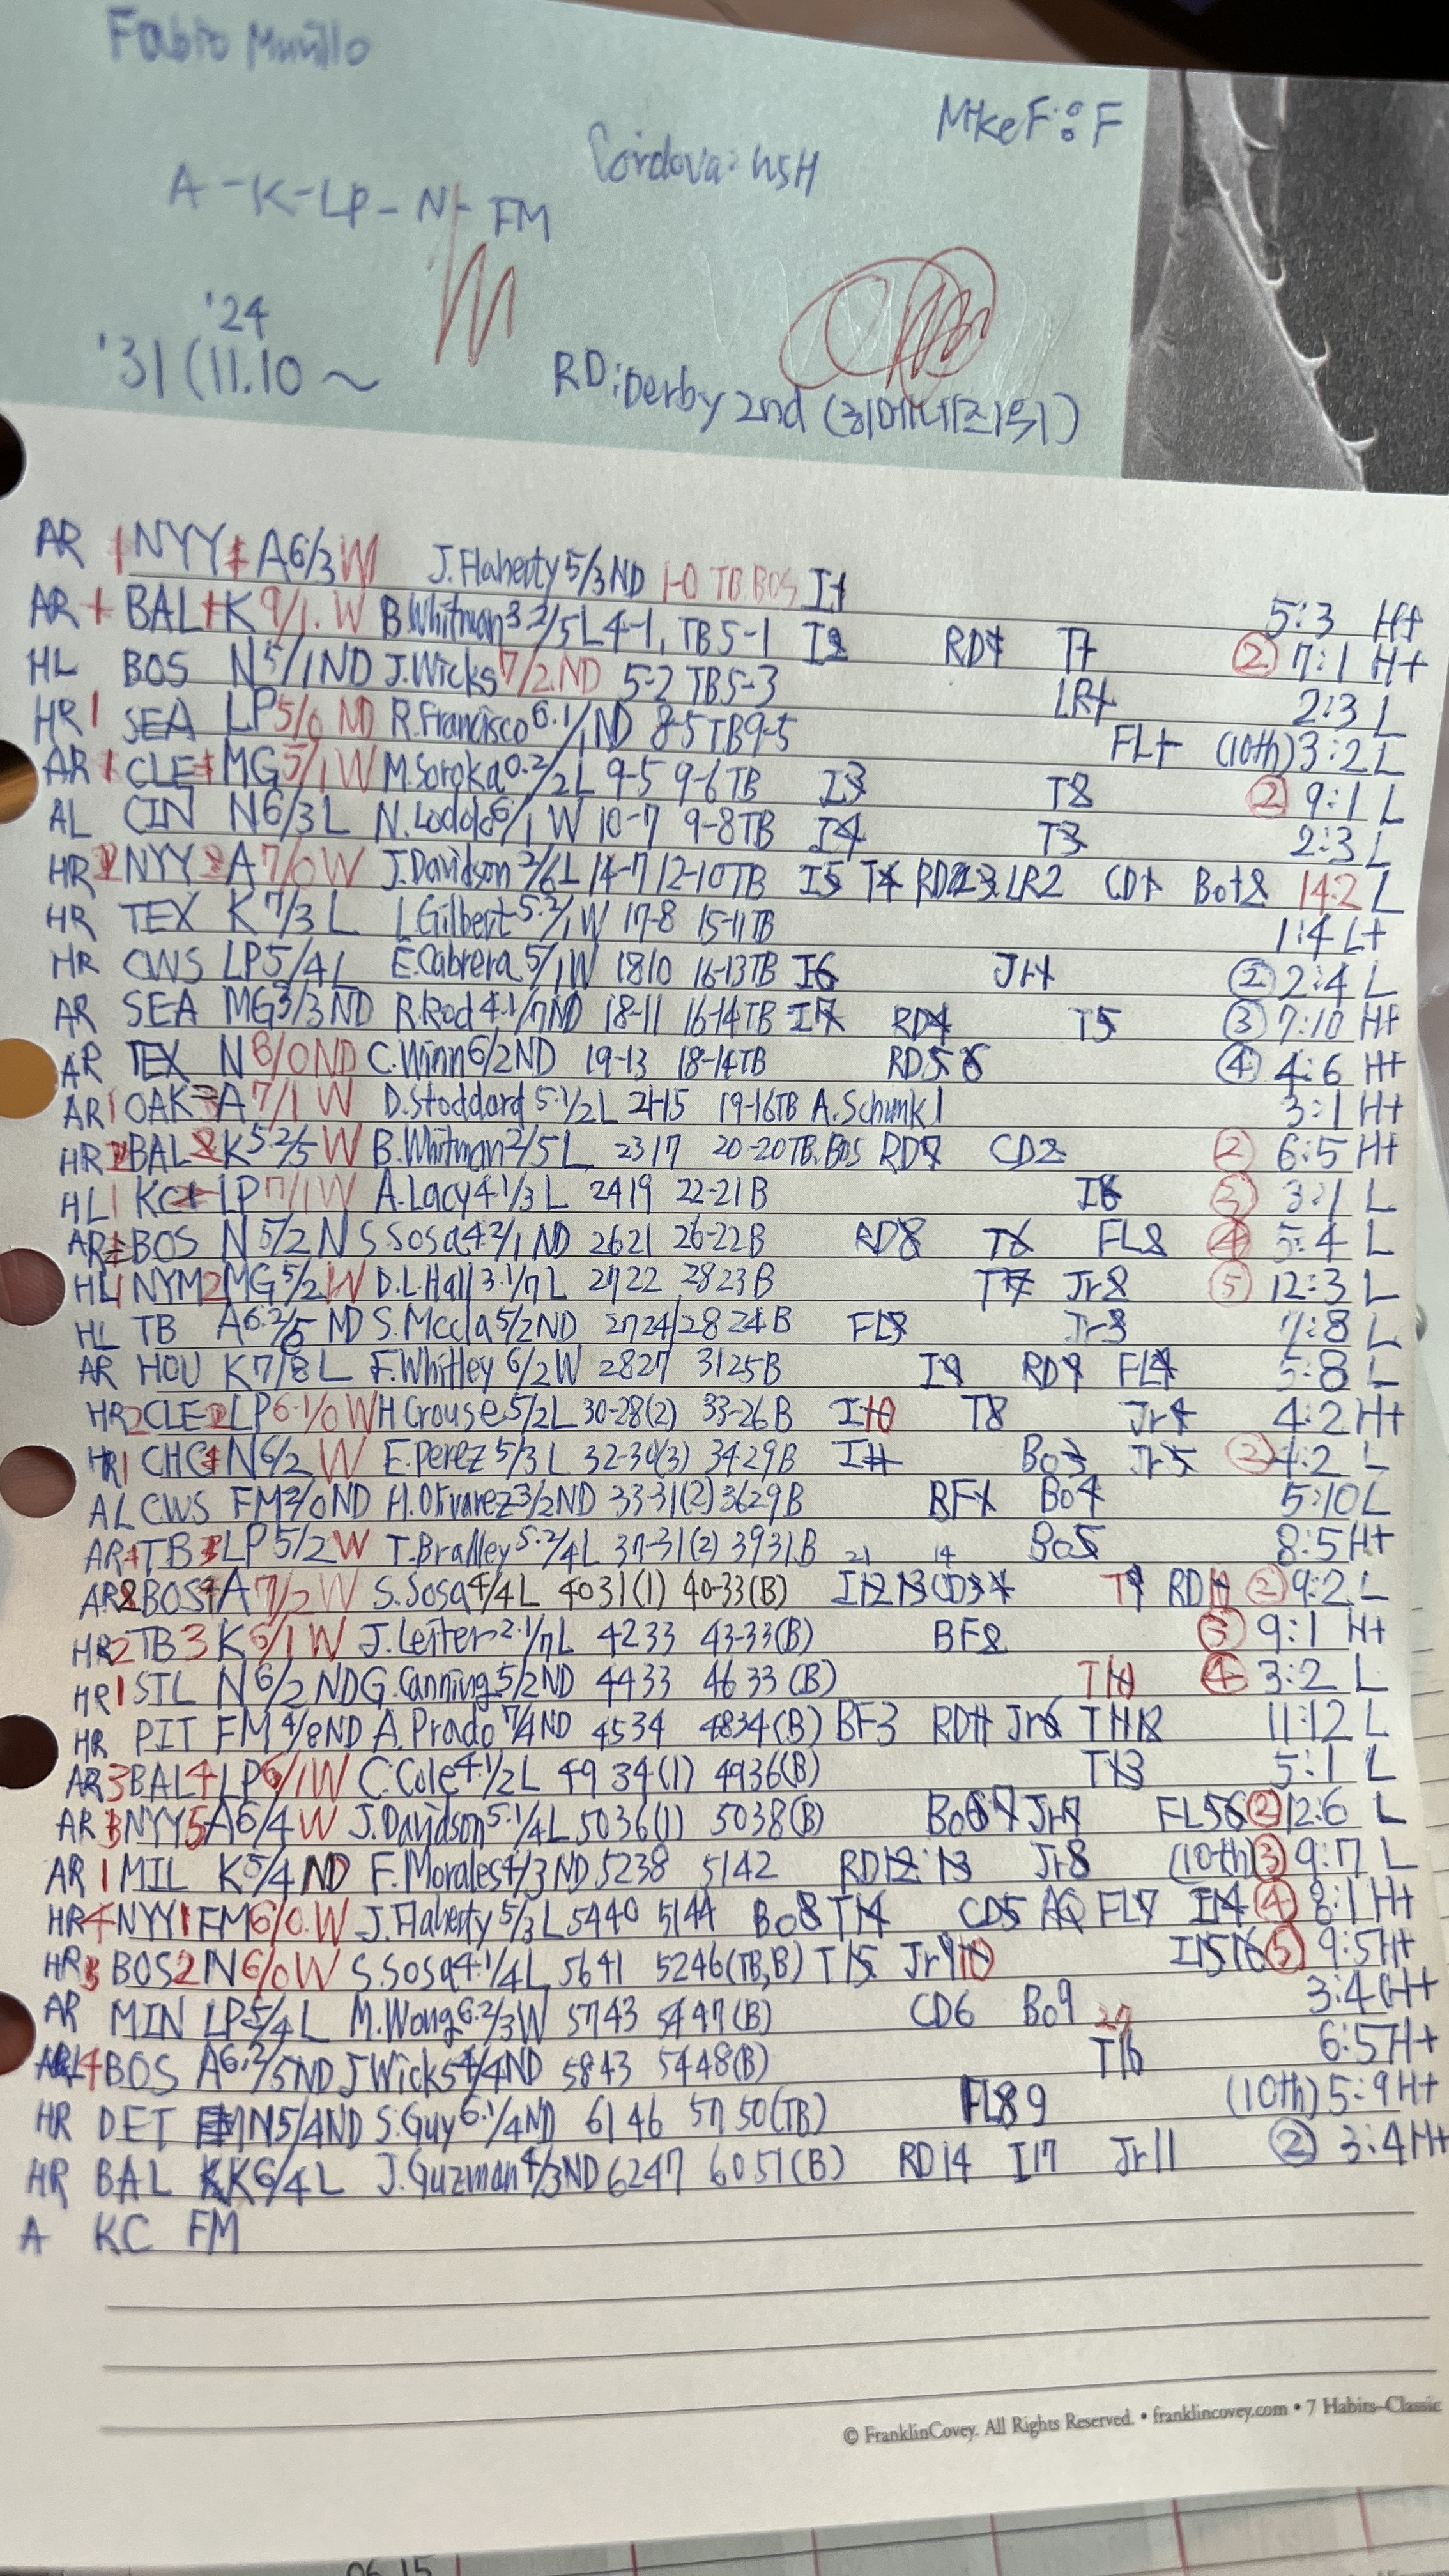 Fabio Murillo
MikeF: F
Cordova: WSH
A-K-LP-N-FM
'24
'31 (11.10 ~
RD: Derby 2nd
AR 1 NYY 1 A6/3 W J. Flaherty 5/3 ND 1-0 TB.BOS I1 5:3 H+
AR 1 BAL 1 K 9/1. W B. Whitman 3.2/5 L 4-1, TB 5-1 I2 RD1 T1 ② 7:1 H+
HL BOS N 5/1 ND J. Wicks 7/2 ND 5-2 TB 5-3 LR1 2:3 L
HR 1 SEA LP 5/0 ND R. Francisco 6.1/1 ND 8-5 TB 9-5 FL1 (10th) 3:2 L
AR 1 CLE 1 MG 5/1 W M. Soroka 0.2/2 L 9-5 9-6 TB I3 T2 ② 9:1 L
AL CIN N6/3 L N. Lodolo 6/1 W 10-7 9-8 TB I4 T3 2:3 L
HR 2 NYY 2 A 7/0 W J. Davidson 2/6 L 14-7 12-10 TB I5 T4 RD2 3 LR2 CD1 Bo1 2 14:2 L
HR TEX K 7/3 L L Gilbert 5.2/1 W 17-8 15-11 TB 1:4 L+
HR CWS LP 5/4 L E. Cabrera 5/1 W 18 10 16-13 TB I6 Jr1 ② 2:4 L
AR SEA MG 3/3 ND R. Rod 4.1/7 ND 18-11 16-14 TB I7 RD4 T5 ③ 7:10 H+
AR TEX N 8/0 ND C. Winn 6/2 ND 19-13 18-14 TB RD5 6 ④ 4:6 H+
AR 1 OAK A 7/1 W D. Stoddard 5.1/2 L 21-15 19-16 TB A. Schunk 1 3:1 H+
HR 2 BAL 2 K 5.2/5 W B. Whitman 2/5 L 23 17 20-20 TB.BOS RD7 CD2 ② 6:5 H+
HL 1 KC 1 LP 7/1 W A. Lacy 4.1/3 L 24 19 22-21 B I8 ③ 3:1 L
AR BOS N 5/2 N S. Sosa 4.2/1 ND 26 21 26-22 B RD8 T6 FL2 ④ 5:4 L
HL 1 NYM 2 MG 5/2 W D.L. Hall 3.1/7 L 27 22 28 23 B T7 Jr2 ⑤ 12:3 L
HL TB A 6.2/5 ND S. Mccla 5/2 ND 27 24 28 24 B FL3 Jr3 7:8 L
AR HOU K 7/8 L F. Whitley 6/2 W 28 27 31 25 B I9 RD9 FL4 5:8 L
HR 2 CLE 2 LP 6.1/0 W H Crouse 5/2 L 30-28(2) 33-26 B I10 T8 Jr4 4:2 H+
HR 1 CHC 1 N 6/2 W E. Perez 5/3 L 32-30(3) 34 29 B I11 Bo3 Jr5 ② 4:2 L
AL CWS FM 2/0 ND H. Olivarez 3/2 ND 33-31(2) 36 29 B BF1 Bo4 5:10 L
AR 1 TB 3 LP 5/2 W T. Bradley 5.2/4 L 37-31(2) 39 31 B Bo5 8:5 H+
AR 2 BOS 1 A 7/2 W S. Sosa 4/4 L 40 31(1) 40-33(B) I12 13 CD3 4 T9 RD10 ② 9:2 L
HR 2 TB 3 K 6/1 W J. Leiter 2.1/7 L 42 33 43-33(B) BF2 ③ 9:1 H+
HR 1 STL N 6/2 ND G. Canning 5/2 ND 44 33 46 33 (B) T10 ④ 3:2 L
HR PIT FM 4/8 ND A. Prado 7/4 ND 45 34 48 34 (B) BF3 RD11 Jr6 T11 12 11:12 L
AR 3 BAL 4 LP 6/1 W C. Cole 4.1/2 L 49 34(1) 49 36(B) T13 5:1 L
AR 3 NYY 5 A6/4 W J. Davidson 5.1/4 L 50 36(1) 50 38(B) Bo6 7 Jr7 FL5 6 ② 12:6 L
AR 1 MIL K 5/4 ND F. Morales 4/3 ND 52 38 51 42 RD12 13 Jr8 (10th) ③ 9:7 L
HR 4 NYY 1 FM 6/0. W J. Flaherty 5/3 L 54 40 51 44 Bo8 T14 CD5 AQ FL7 I14 ④ 8:1 H+
HR 3 BOS 2 N 6/0 W S. Sosa 4.1/4 L 56 41 52 46 (TB,B) T15 Jr9 10 I15 16 ⑤ 9:5 H+
AR MIN LP 5/4 L M. Wong 6.2/3 W 57 43 54 47 (B) CD6 Bo9 3:4 H+
4 BOS A 6.2/5 ND J Wicks 4/4 ND 58 43 54 48 (B) T16 6:5 H+
HR DET N 5/4 ND S. Guy 6.1/4 ND 61 46 57 50 (TB) FL8 9 (10th) 5:9 H+
HR BAL K 6/4 L J. Guzman 4/3 ND 62 47 60 51 (B) RD14 I17 Jr11 ② 3:4 H+
A KC FM
© FranklinCovey. All Rights Reserved. • franklincovey.com • 7 Habits–Classic
06.15